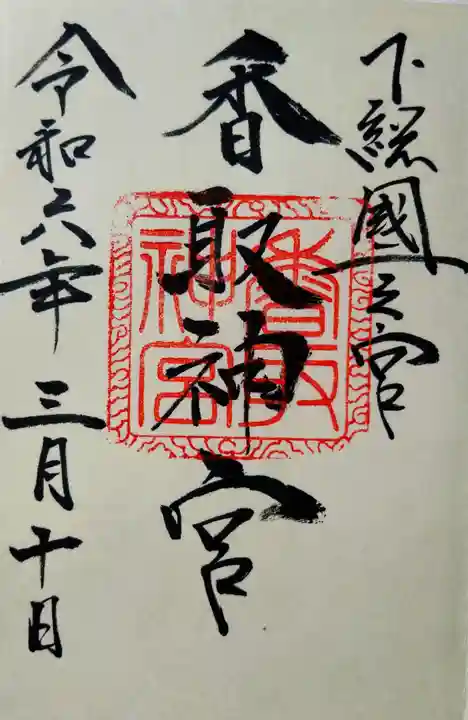 下総國一之宮
香取神宮
香取
神宮
令和六年 三月十日